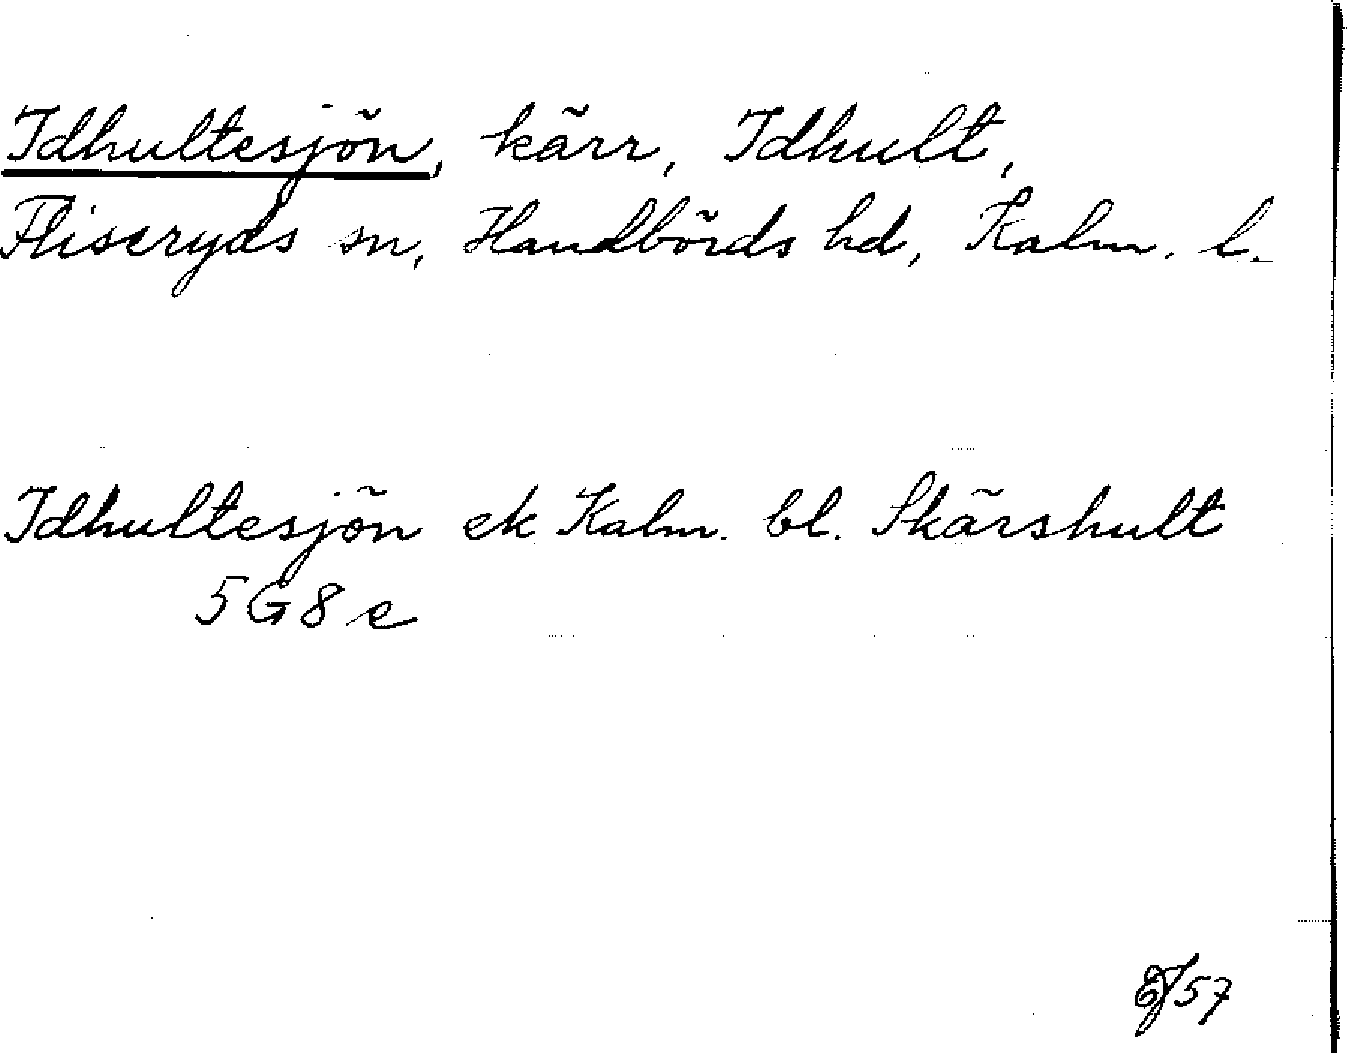 Idhultesjön, kärr, Idhult,
Fliseryds sn, Handbörds hd, Kalm. l.
Idhultesjön ek Kalm. bl. Skärshult
5G8e
EJ57